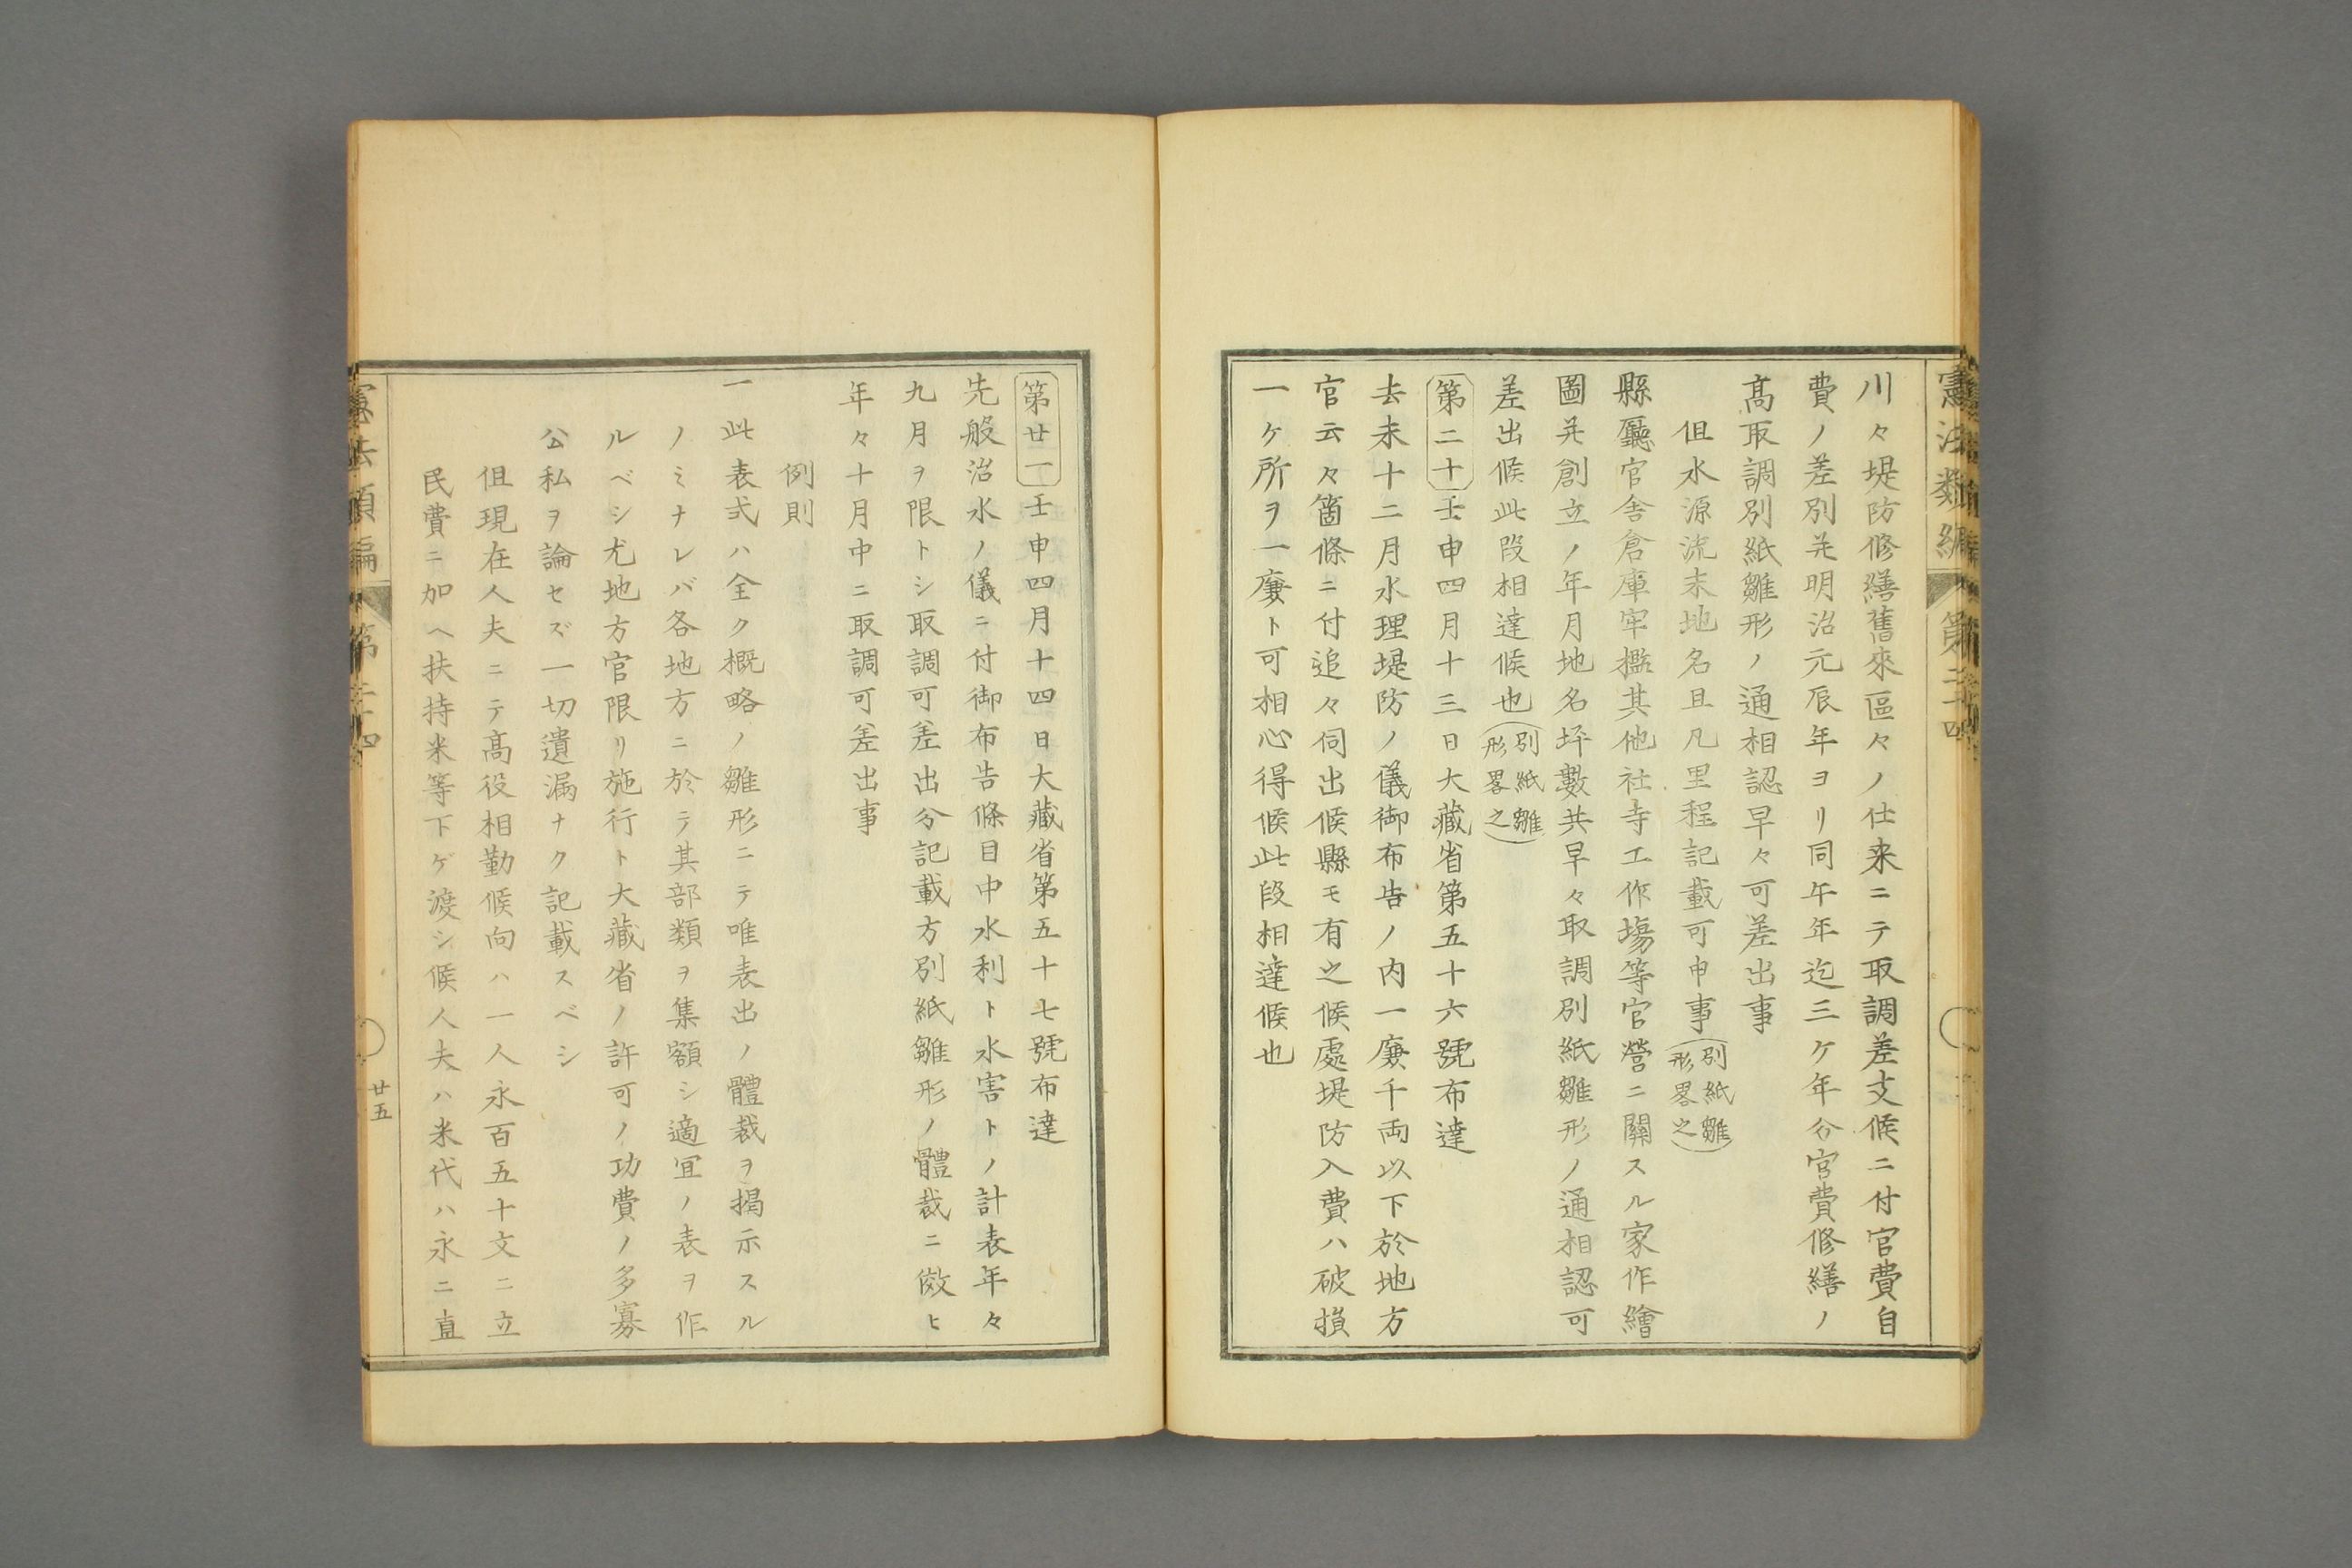 憲法類編 第二十四
川々堤防修繕舊來區々ノ仕来ニテ取調差支候ニ付官費自
費ノ差別并明治元辰年ヨリ同午年迄三ケ年分官費修繕ノ
髙取調別紙雛形ノ通相認早々可差出事
但水源流末地名且凡里程記載可申事(別紙雛形畧之)
縣廳官舎倉庫牢檻其他社寺工作塲等官營ニ關スル家作繪
圖并創立ノ年月地名坪數共早々取調別紙雛形ノ通相認可
差出候此段相達候也(別紙雛形畧之)
第二十壬申四月十三日大藏省第五十六號布達
去未十二月水理堤防ノ儀御布告ノ内一廉千両以下於地方
官云々箇條ニ付追々伺出候縣モ有之候處堤防入費ハ破損
一ケ所ヲ一廉ト可相心得候此段相達候也
第廿一壬申四月十四日大藏省第五十七號布達
先般治水ノ儀ニ付御布告條目中水利ト水害トノ計表年々
九月ヲ限トシ取調可差出分記載方別紙雛形ノ體裁ニ傚ヒ
年々十月中ニ取調可差出事
例則
一此表式ハ全ク概略ノ雛形ニテ唯表出ノ體裁ヲ掲示スル
ノミナレバ各地方ニ於テ其部類ヲ集額シ適宜ノ表ヲ作
ルベシ尤地方官限リ施行ト大藏省ノ許可ノ功費ノ多寡
公私ヲ論セズ一切遺漏ナク記載スベシ
但現在人夫ニテ髙役相勤候向ハ一人永百五十文ニ立
民費ニ加ヘ扶持米等下ゲ渡シ候人夫ハ米代ハ永ニ直
憲法類編 第二十四
廿五